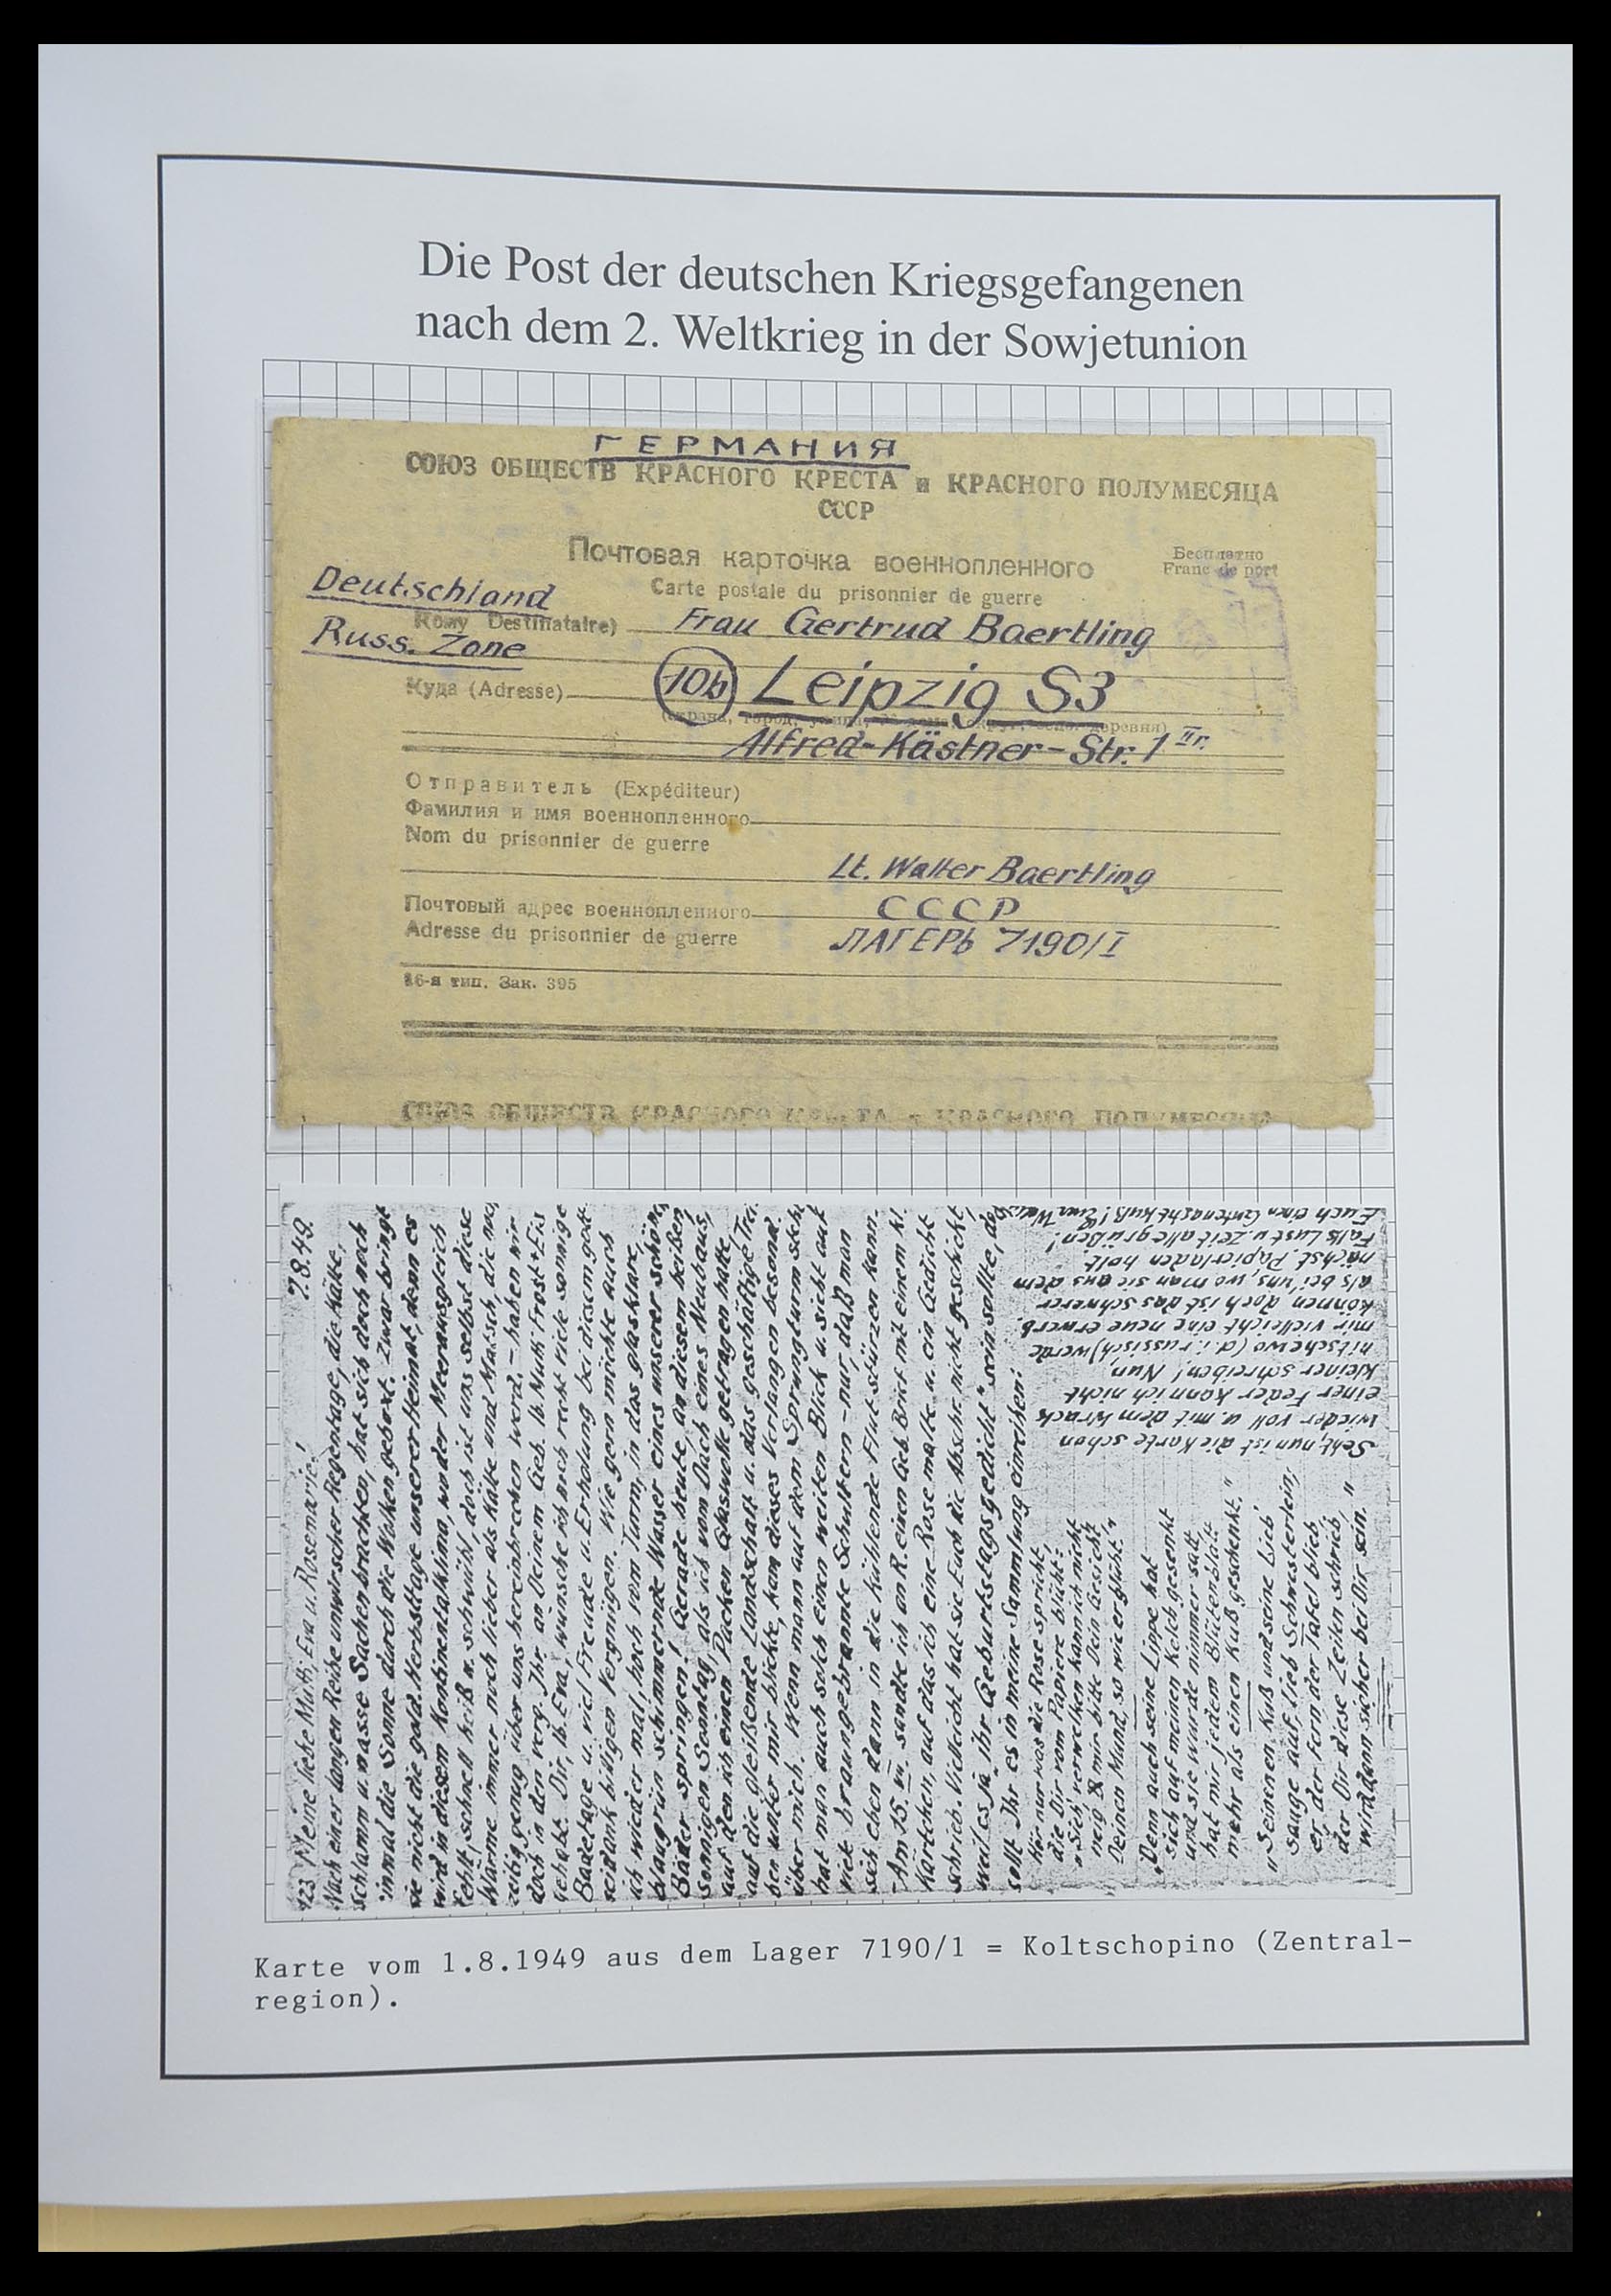 Die Post der deutschen Kriegsgefangenen
nach dem 2. Weltkrieg in der Sowjetunion
ГЕРМАНИЯ
СОЮЗ ОБЩЕСТВ КРАСНОГО КРЕСТА и КРАСНОГО ПОЛУМЕСЯЦА
СССР
Почтовая карточка военнопленного
Бесплатно
Franc de port
Carte postale du prisonnier de guerre
Deutschland
Кому Destinataire) Frau Gertrud Baertling
Russ. Zone
Куда (Adresse) 10b Leipzig S3
Alfred-Kästner-Str. 1 II r.
Отправитель (Expéditeur)
Фамилия и имя военнопленного
Nom du prisonnier de guerre
Lt. Walter Baertling
Почтовый адрес военнопленного СССР
Adresse du prisonnier de guerre ЛАГЕРЬ 7190/I
16-я тип. Зак. 395
СОЮЗ ОБЩЕСТВ КРАСНОГО КРЕСТА и КРАСНОГО ПОЛУМЕСЯЦА
423 Meine liebe Mutti, Eva u. Rosemarie! 7.8.49.
Nach einer langen Reihe unwirscher Regentage, die Kälte,
Schlamm u. nasse Sachen brachten, hat sich doch noch
'inmal die Sonne durch die Wolken geboxt. Zwar bringt
sie nicht die gold. Herbsttage unserer Heimat, denn es
wird in diesem Kontinentalklima, wo der Meerausgleich
fehlt, schnell heiß u. schwühl, doch ist uns selbst diese
Wärme immer noch lieber als Kälte und Matsch, die noch
zeitig genug über uns hereinbrechen werd. - haben wir
doch in den verg. Jhr. an Deinem Geb. lb. Mutti Frost + Eis
gehabt. Dir, lb. Eva, wünsche ich noch recht viele sonnige
Badetage u. viel Freude u. Erholung bei diesem gott-
seidank billigen Vergnügen. Wie gern möchte auch
ich wieder mal, hoch vom Turm, in das glasklare,
blaugrün schimmernde Wasser eines unserer schönen
Bäder springen! Gerade heute, an diesem heißen,
sonnigen Sonntag, als ich vom Dach eines Neubaus,
auf den ich einen Packen Glaswolle getragen hatte,
auf die gleißende Landschaft u. das geschäftige Trei-
ben unter mir blickte, kam dieses Verlangen besond.
über mich. Wenn man auf dem Sprungturm steht
hat man auch solch einen weiten Blick u. sieht auf
viele braungebrannte Schultern - nur daß man
sich eben dann in die kühlende Flut stürzen kann.
- Am 15. sandte ich an R. einen Geb. Brief mit einem kl.
Kärtchen, auf das ich eine Rose malte u. ein Gedicht
schrieb. Vielleicht hat sie Euch die Abschr. nicht geschickt,
weil es ja „ihr Geburtstagsgedicht“ sein sollte, da
sollt Ihr es in meine Sammlung einreihen:
Hör nur was die Rose spricht
die Dir vom Papiere blüht:
„Sieh', verwelken kann ich nicht
neig' mir bitte Dein Gesicht,
Deinen Mund, so wie er glüht.“
„Denn auch seine Lippe hat
sich auf meinen Kelch gesenkt
und sie wurde nimmer satt,
hat mir jedem Blütenblatt
mehr als einen Kuß geschenkt.“
„Seinen Kuß und seine Lieb'
sauge auf, lieb Schwesterlein,
er der fern der Tafel blieb
der Dir diese Zeilen schrieb,
wird dann sicher bei Dir sein.“
Seht, nun ist die Karte schon
wieder voll u. mit dem Wrack
einer Feder kann ich nicht
kleiner schreiben! Nun,
nitschewo (d.i. russisch) werde
mir vielleicht eine neue erwerb.
können doch ist das schwerer
als bei uns, wo man sie aus dem
nächst. Papierladen holt.
Falls Lust u. Zeit alle grüßen!
Euch einen Gutenachtkuß! Euer Walter
Karte vom 1.8.1949 aus dem Lager 7190/1 = Koltschopino (Zentral-
region).